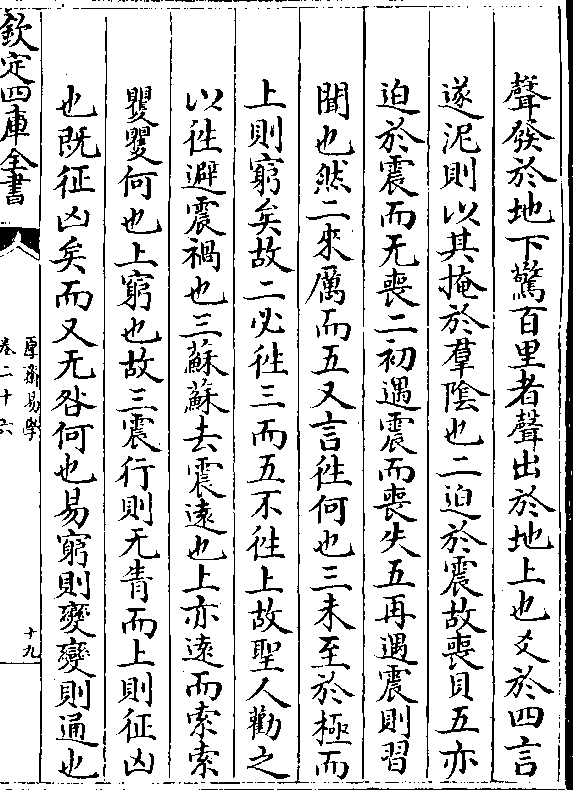 聲發於地下驚百里者聲出於地上也爻於四言
遂泥則以其掩於羣隂也二迫於震故喪貝五亦
迫於震而无喪二初遇震而喪失五再遇震則習
聞也然二來厲而五又言徃何也三未至於極而
上則窮矣故二必徃三而五不徃上故聖人勸之
以徃避震禍也三蘇蘇去震遠也上亦遠而索索
矍矍何也上窮也故三震行則无眚而上則征凶
也既征凶矣而又无咎何也易窮則變變則通也
欽定四庫全書
厚齋易學
卷二十六
十九